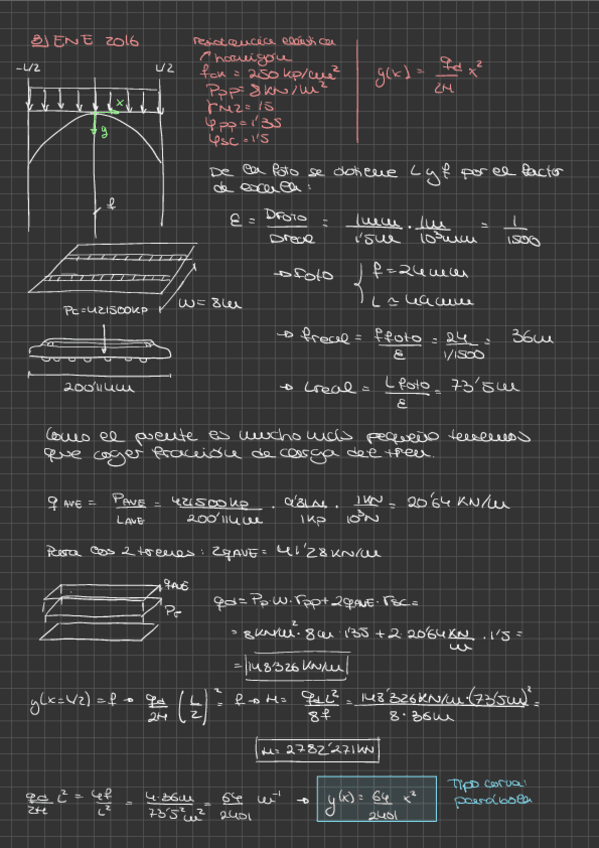 3) ENE 2016
resistencia elástica
hormigón
fck = 250 kp/cm²
Ppp = 8 kN/m²
γM2 = 1'5
φpp = 1'35
φsc = 1'5
y(x) = qd/2H x²
-L/2
L/2
x
y
f
De la foto se obtiene L y f por el factor
de escala:
ε = Dfoto/Dreal = 1mm/1'5m · 1m/10³mm = 1/1500
→ foto { f = 24mm
L ≃ 49mm
W = 8m
Pc = 421500kp
200'11m
→ freal = ffoto/ε = 24/1/1500 = 36m
→ Lreal = Lfoto/ε = 73'5m
Como el puente es mucho más pequeño tenemos
que coger fracción de carga del tren.
qAVE = PAVE/LAVE = 421500kp/200'11m · 9'81N/1kp · 1kN/10³N = 20'64 kN/m
Para los 2 trenes: 2qAVE = 41'28 kN/m
qAVE
Pp
qd = Pp·W·γpp + 2qAVE·γsc =
= 8kN/m²·8m·1'35 + 2·20'64 kN/m · 1'5 =
= 148'326 kN/m
y(x=L/2) = f → qd/2H (L/2)² = f → H = qd L²/8f = 148'326kN/m·(73'5m)²/8·36m =
H = 2782'271kN
qd/2H L² = 4f/L² = 4·36m/73'5² m² = 64/2401 m⁻¹ → y(x) = 64/2401 x²
Tipo curva:
parábola